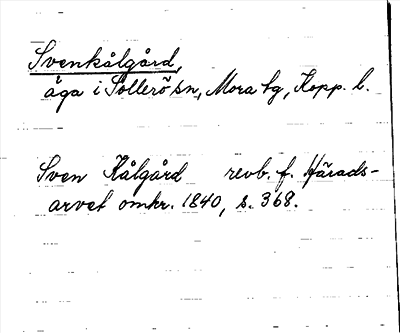 Svenkålgård,
äga i Sollerö sn, Mora tg, Kopp. l.
Sven Kålgård revb. f. Härads-
arvet omkr. 1840, s. 368.